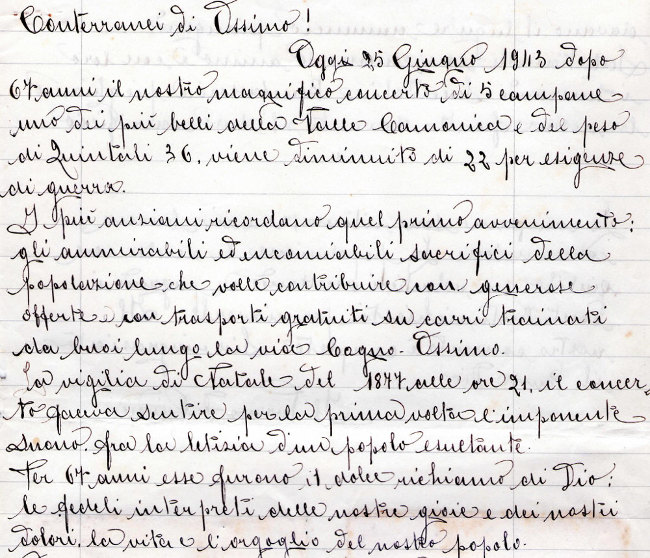 Conterranei di Ossimo!
Oggi 25 Giugno 1943 dopo
67 anni il nostro magnifico concerto di 5 campane
uno dei più belli della Valle Camonica e del peso
di Quintali 36, viene diminuito di 22 per esigenze
di guerra.
I più anziani ricordano quel primo avvenimento:
gli ammirabili ed encomiabili sacrifici della
popolazione che volle contribuire con generose
offerte e con trasporti gratuiti su carri trainati
da buoi lungo la via Cogno-Ossimo.
La vigilia di Natale del 1877 alle ore 21, il concer-
to faceva sentire per la prima volta l'imponente
suono, fra la letizia d'un popolo esultante.
Per 67 anni esse furono il dolce richiamo di Dio:
le fedeli interpreti delle nostre gioie e dei nostri
dolori, la vita e l'orgoglio del nostro popolo.